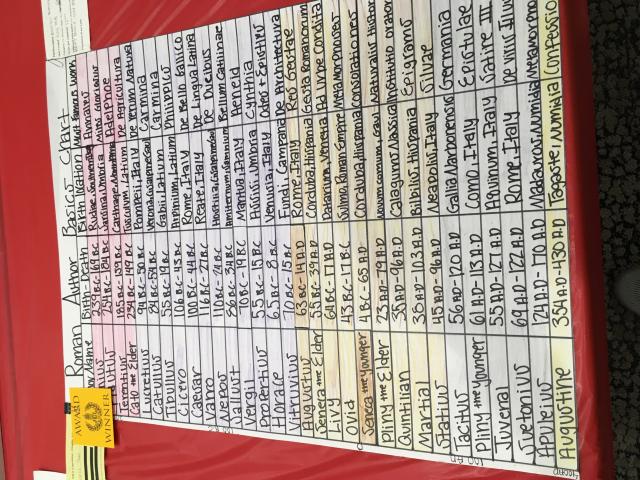 Roman Author Basics Chart
Name Birth-Death Birth Location Most Famous Work
239 B.C-169 B.C Rudiae, Annales
254 B.C-184 B.C Umbria
Terentius 185 B.C-159 B.C Carthage, Adelphoe
Cato the Elder 234 B.C-149 B.C Tusculum, Latium De Agricultura
Lucretius 94 B.C- Pompeii, Italy De Rerum Natura
Catullus 84 B.C-54 B.C Verona, Cisalpine Gaul Carmina
Tibullus 55 B.C-19 B.C Gabii, Latium Carmina
Cicero 106 B.C-43 B.C Arpinium, Latium Philippics
Caesar 100 B.C-44 B.C Rome, Italy De Bello Gallico
Varro 116 B.C-27 B.C Reate, Italy De Lingua Latina
Nepos 110 B.C-24 B.C Hostilia, Cisalpine Gaul De Ducibus
Sallust 86 B.C-34 B.C Amiternum, Samnium Bellum Catilinae
Vergil 70 B.C-19 B.C Mantua, Italy Aeneid
Propertius 55 B.C-15 B.C Assisi, Italy Cynthia
Horace 65 B.C-8 B.C Venusia, Italy Odes + Epistles
Vitruvius 70 B.C-15 B.C Fundi, Campania De Architectura
Augustus 63 B.C-14 A.D Rome, Italy Res Gestae
Seneca the Elder 55 B.C-39 A.D Corduba, Hispania Gesta Romanorum
Livy 64 B.C-17 A.D Patavium, Venetia Ad Urbe Condita
Ovid 43 B.C-17 B.C Sulmo, Roman Empire Metamorphoses
Seneca the Younger 4 B.C-65 A.D Corduba, Hispania Consolationes
Pliny the Elder 23 A.D-79 A.D Novum Comum, Gaul Naturalis Histor
Quintilian 35 A.D-96 A.D Calagurris, Hispania Institutio orator
Martial 38 A.D-103 A.D Bilbilis, Hispania Epigrams
Statius 45 A.D-96 A.D Neapolis, Italy Silvae
Tacitus 56 A.D-120 A.D Gallia Narbonensis Germania
Pliny the Younger 61 A.D-113 A.D Como, Italy Epistulae
Juvenal 55 A.D-127 A.D Aquinum, Italy Satire III
Suetonius 69 A.D-122 A.D Rome, Italy De Viris Illus
Apuleius 124 A.D-170 A.D Madauros, Numidia Metamorphos
Augustine 354 A.D-430 A.D Tagaste, Numidia Confessio
AWARD
WINNER